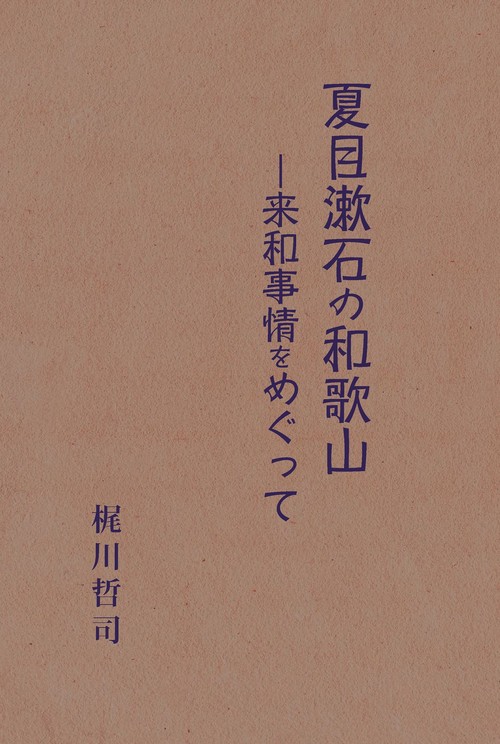 夏目漱石の和歌山
―来和事情をめぐって
梶川哲司